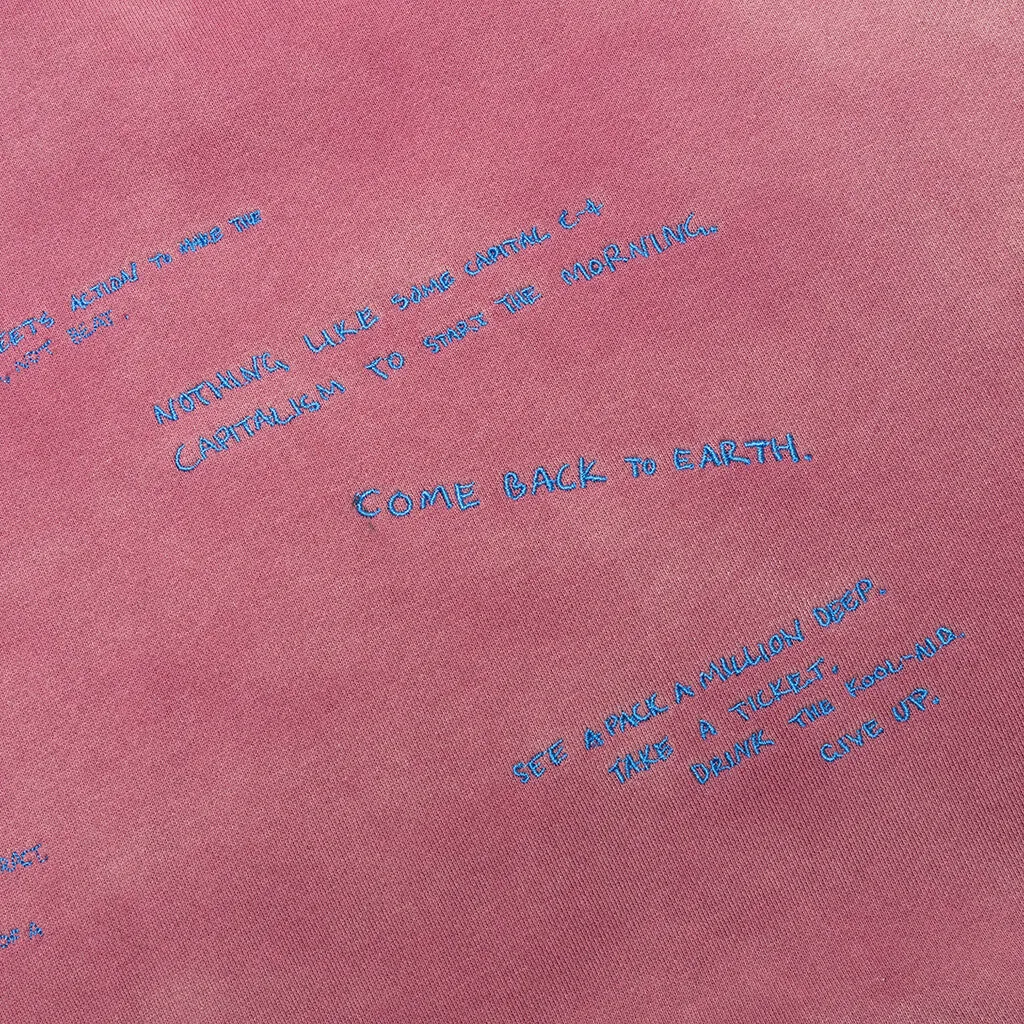 ACTION TO MAKE THE
NOTHING LIKE SOME CAPITAL C-4
CAPITALISM TO START THE MORNING.
COME BACK TO EARTH.
SEE A PACK A MILLION DEEP.
TAKE A TICKET.
DRINK THE KOOL-AID.
GIVE UP.